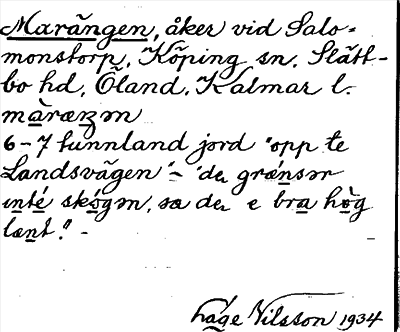 Marängen, åker vid Salo-
monstorp, Köping sn, Slätt-
bo hd, Öland, Kalmar l.
màræŋən
6-7 tunnland jord "opp te
Landsvägen" - "de grǽnsər
ìnté skógən, sa de e bra hög
lænt." -
Låge Nilsson 1934